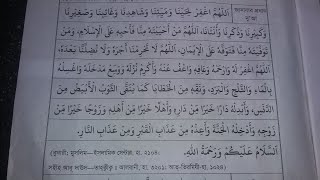 اللَّهُمَّ اغْفِرْ لِحَيِّنَا وَمَيِّتِنَا وَشَاهِدِنَا وَغَائِبِنَا وَصَغِيرِنَا
وَكَبِيرِنَا وَذَكَرِنَا وَأُنْثَانَا، اللَّهُمَّ مَنْ أَحْيَيْتَهُ مِنَّا فَأَحْيِهِ عَلَى الْإِسْلَامِ، وَمَنْ
تَوَفَّيْتَهُ مِنَّا فَتَوَفَّهُ عَلَى الْإِيمَانِ، اللَّهُمَّ لَا تَحْرِمْنَا أَجْرَهُ وَلَا تُضِلَّنَا بَعْدَهُ،
اللَّهُمَّ اغْفِرْ لَهُ وَارْحَمْهُ وَعَافِهِ وَاعْفُ عَنْهُ وَأَكْرِمْ نُزُلَهُ وَوَسِّعْ مَدْخَلَهُ وَاغْسِلْهُ
بِالْمَاءِ وَالثَّلْجِ وَالْبَرَدِ، وَنَقِّهِ مِنَ الْخَطَايَا كَمَا يُنَقَّى الثَّوْبُ الْأَبْيَضُ مِنَ
الدَّنَسِ، وَأَبْدِلْهُ دَارًا خَيْرًا مِنْ دَارِهِ وَأَهْلًا خَيْرًا مِنْ أَهْلِهِ وَزَوْجًا خَيْرًا مِنْ
زَوْجِهِ وَأَدْخِلْهُ الْجَنَّةَ وَأَعِذْهُ مِنْ عَذَابِ الْقَبْرِ وَمِنْ عَذَابِ النَّارِ.
السَّلَامُ عَلَيْكُمْ وَرَحْمَةُ اللهِ.